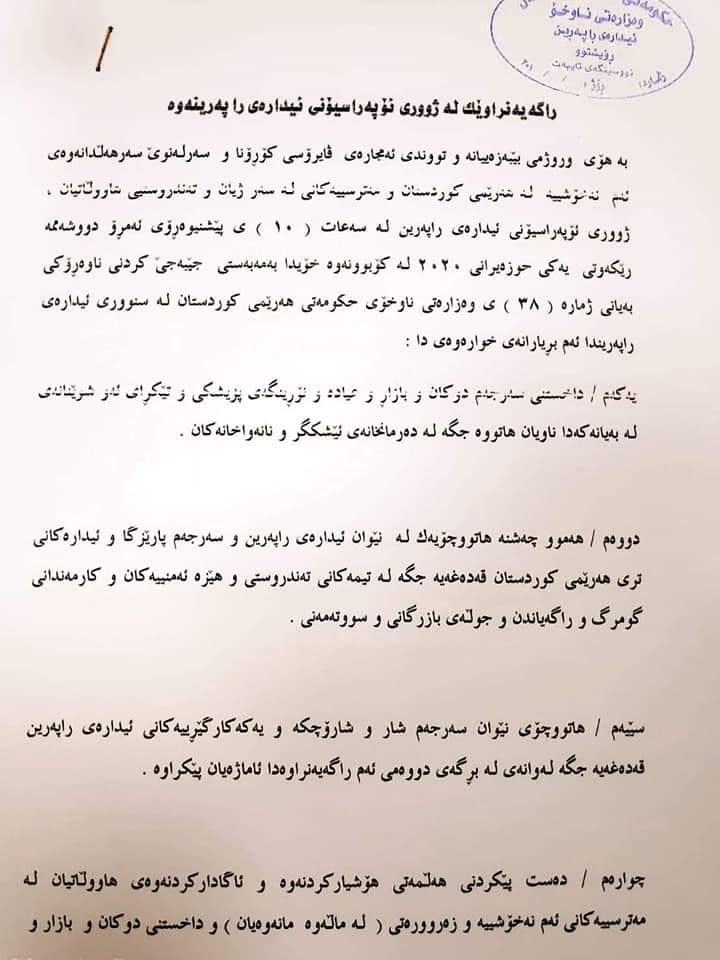 وەزارەتی ناوخۆ
ئیدارەی راپەڕین
نووسینگەی تایبەت
ڕاگەیەنراوێك لە ژووری ئۆپەراسیۆنی ئیدارەی ڕاپەرینەوە
بە هۆی وروژمی بێبەزەییانە و تووندی ئەمجارەی ڤایرۆسی کۆڕۆنا و سەرلەنوێ سەرهەڵدانەوەی
ئەم نەخۆشییە لە هەرێمی کوردستان و مەترسییەکانی لە سەر ژیان و تەندروستیی هاووڵاتیان ،
ژووری ئۆپەراسیۆنی ئیدارەی راپەرین لە سەعات ( ١٠ ) ی پێشنیوەڕۆی ئەمڕۆ دووشەممە
رێکەوتی یەکی حوزەیرانی ٢٠٢٠ لە کۆبوونەوە خۆیدا بەمەبەستی جێبەجێ کردنی ناوەڕۆکی
بەیانی ژمارە ( ٣٨ ) ی وەزارەتی ناوخۆی حکومەتی هەرێمی کوردستان لە سنووری ئیدارەی
راپەریندا ئەم بڕیارانەی خوارەوەی دا :
یەکەم / داخستنی سەرجەم دوکان و بازاڕ و عیادە و نۆڕینگەی پزیشکی و تێکڕای ئەو شوێنانەی
لە بەیانەکەدا ناویان هاتووە جگە لە دەرمانخانەی ئێشکگر و نانەواخانەکان .
دووەم / هەموو چەشنە هاتووچۆیەك لە نێوان ئیدارەی راپەرین و سەرجەم پارێزگا و ئیدارەکانی
تری هەرێمی کوردستان قەدەغەیە جگە لە تیمەکانی تەندروستی و هێزە ئەمنییەکان و کارمەندانی
گومرگ و راگەیاندن و جوڵەی بازرگانی و سووتەمەنی .
سێیەم / هاتووچۆی نێوان سەرجەم شار و شارۆچکە و یەکەکارگێڕییەکانی ئیدارەی راپەرین
قەدەغەیە جگە لەوانەی لە بڕگەی دووەمی ئەم راگەیەنراوەدا ئاماژەیان پێکراوە .
چوارەم / دەست پێکردنی هەڵمەتی هۆشیارکردنەوە و ئاگادارکردنەوەی هاووڵاتیان لە
مەترسییەکانی ئەم نەخۆشییە و زەروورەتی ( لە ماڵەوە مانەوەیان ) و داخستنی دوکان و بازار و